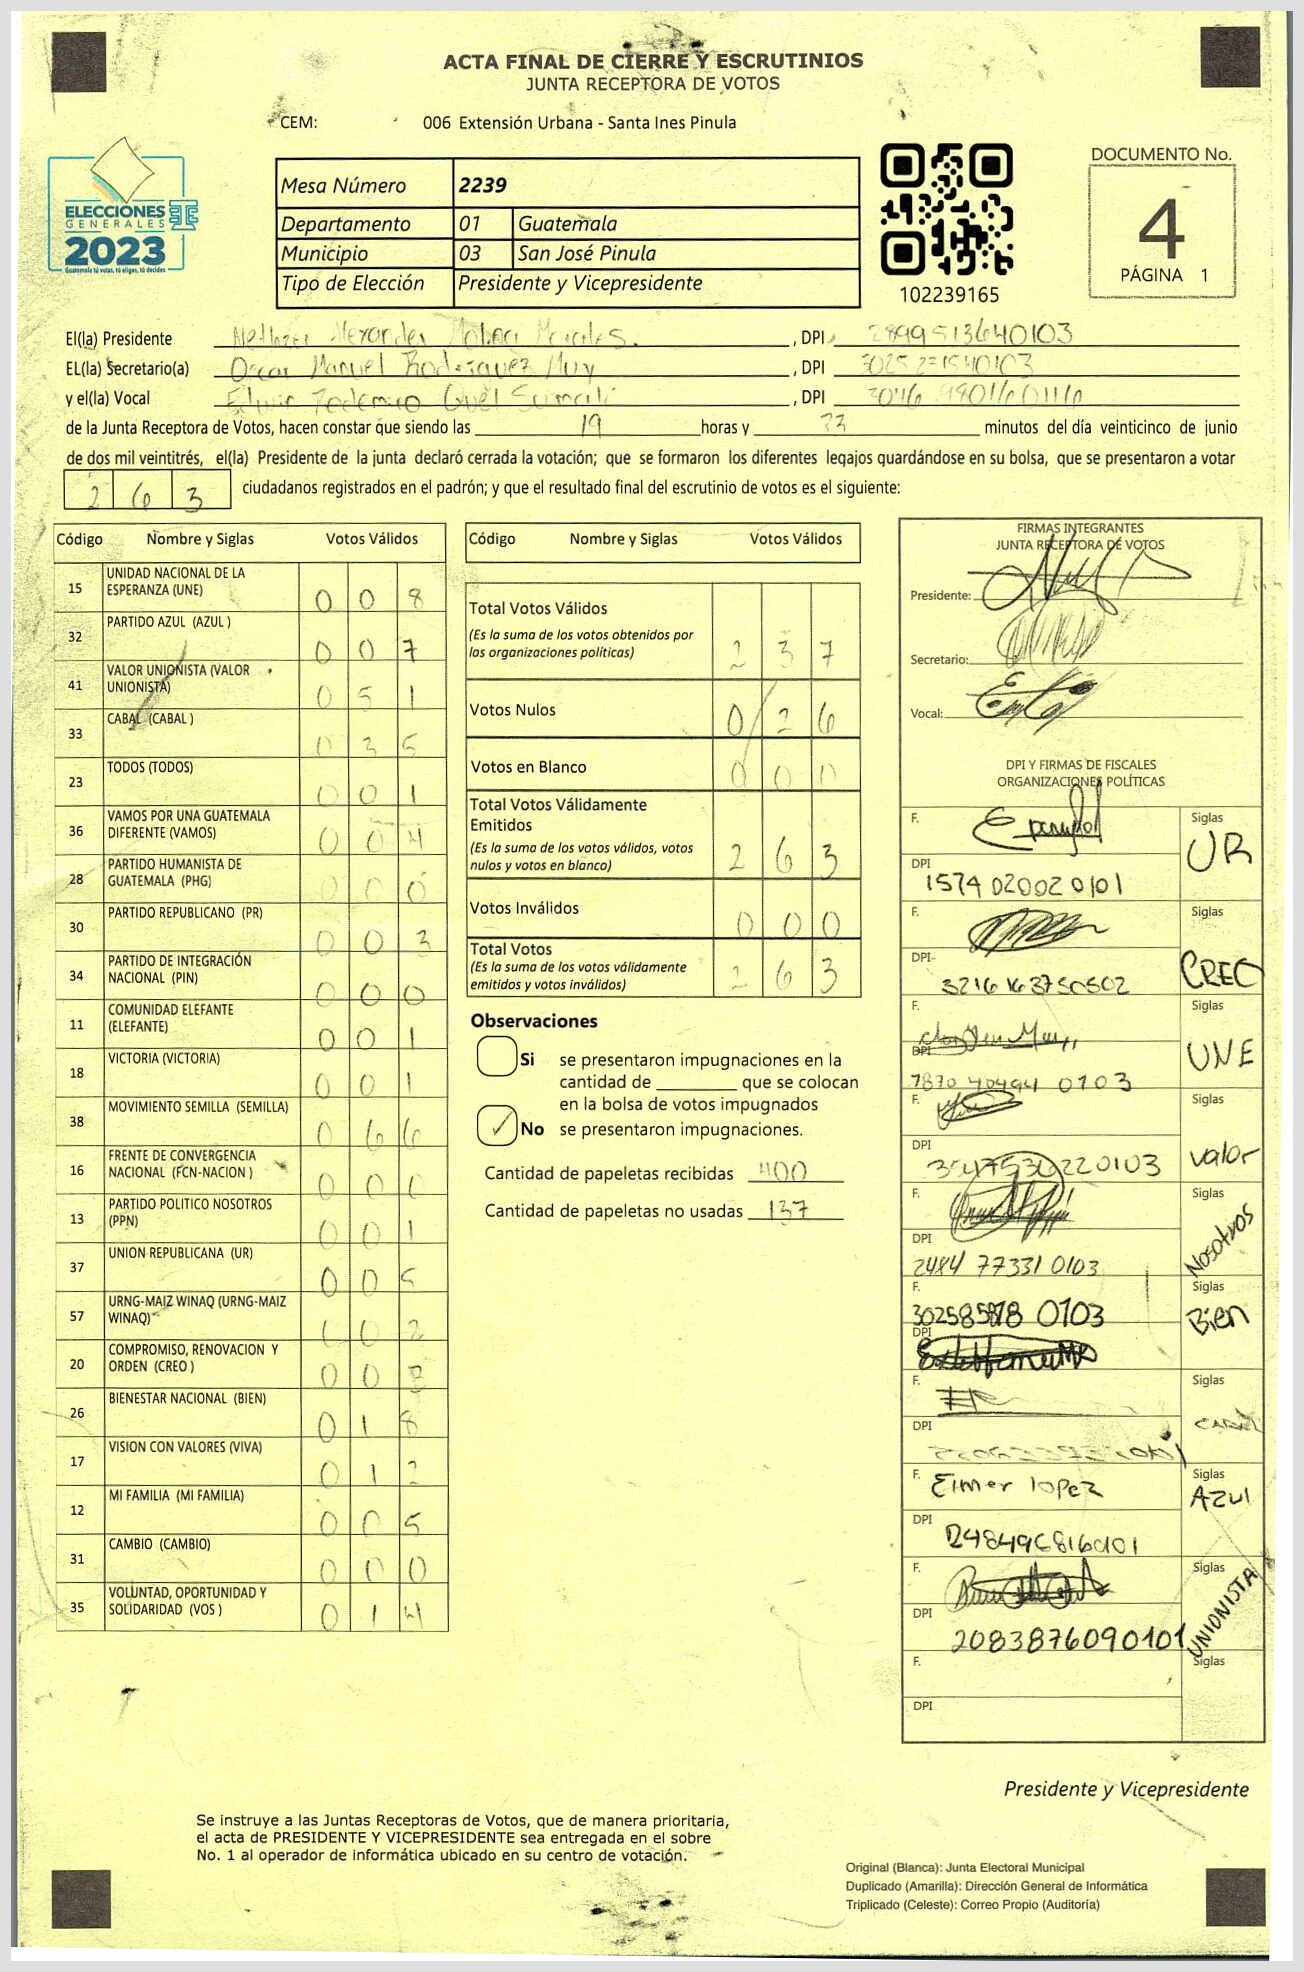 ACTA FINAL DE CIERRE Y ESCRUTINIOS
JUNTA RECEPTORA DE VOTOS
CEM: 006 Extensión Urbana - Santa Ines Pinula
ELECCIONES
GENERALES
2023
Guatemala tú votas, tú eliges, tú decides
Mesa Número 2239
Departamento 01 Guatemala
Municipio 03 San José Pinula
Tipo de Elección Presidente y Vicepresidente
102239165
DOCUMENTO No.
4
PÁGINA 1
El(la) Presidente Alexander Molina Morales. , DPI 2899513640103
EL(la) Secretario(a) Oscar Manuel Rodriguez Muy , DPI
y el(la) Vocal Edwin Federico , DPI
de la Junta Receptora de Votos, hacen constar que siendo las 19 horas y 33 minutos del día veinticinco de junio
de dos mil veintitrés, el(la) Presidente de la junta declaró cerrada la votación; que se formaron los diferentes legajos quardándose en su bolsa, que se presentaron a votar
2 6 3 ciudadanos registrados en el padrón; y que el resultado final del escrutinio de votos es el siguiente:
Código Nombre y Siglas Votos Válidos
15 UNIDAD NACIONAL DE LA ESPERANZA (UNE) 0 0 8
32 PARTIDO AZUL (AZUL ) 0 0 7
41 VALOR UNIONISTA (VALOR UNIONISTA) 0 5 1
33 CABAL (CABAL ) 0 3 5
23 TODOS (TODOS) 0 0 1
36 VAMOS POR UNA GUATEMALA DIFERENTE (VAMOS) 0 0 4
28 PARTIDO HUMANISTA DE GUATEMALA (PHG) 0 0 0
30 PARTIDO REPUBLICANO (PR) 0 0 3
34 PARTIDO DE INTEGRACIÓN NACIONAL (PIN) 0 0 0
11 COMUNIDAD ELEFANTE (ELEFANTE) 0 0 1
18 VICTORIA (VICTORIA) 0 0 1
38 MOVIMIENTO SEMILLA (SEMILLA) 0 6 6
16 FRENTE DE CONVERGENCIA NACIONAL (FCN-NACION ) 0 0 0
13 PARTIDO POLITICO NOSOTROS (PPN) 0 0 1
37 UNION REPUBLICANA (UR) 0 0 5
57 URNG-MAIZ WINAQ (URNG-MAIZ WINAQ) 0 0 2
20 COMPROMISO, RENOVACION Y ORDEN (CREO ) 0 0
26 BIENESTAR NACIONAL (BIEN) 0 1 8
17 VISION CON VALORES (VIVA) 0 1 2
12 MI FAMILIA (MI FAMILIA) 0 0 5
31 CAMBIO (CAMBIO) 0 0 0
35 VOLUNTAD, OPORTUNIDAD Y SOLIDARIDAD (VOS ) 0 1 4
Código Nombre y Siglas Votos Válidos
Total Votos Válidos 2 3 7
(Es la suma de los votos obtenidos por
las organizaciones políticas)
Votos Nulos 0 2 6
Votos en Blanco 0 0 0
Total Votos Válidamente
Emitidos
(Es la suma de los votos válidos, votos
nulos y votos en blanco) 2 6 3
Votos Inválidos 0 0 0
Total Votos
(Es la suma de los votos válidamente
emitidos y votos inválidos) 2 6 3
Observaciones
Si se presentaron impugnaciones en la
cantidad de ________ que se colocan
en la bolsa de votos impugnados
✓ No se presentaron impugnaciones.
Cantidad de papeletas recibidas 400
Cantidad de papeletas no usadas 137
FIRMAS INTEGRANTES
JUNTA RECEPTORA DE VOTOS
Presidente:
Secretario:
Vocal:
DPI Y FIRMAS DE FISCALES
ORGANIZACIONES POLÍTICAS
F. Siglas UR
DPI 1574 02002 0101
F. Siglas CREO
DPI 3216163750502
F. Siglas UNE
DPI
F. Siglas valor
DPI 3547536220103
F. Siglas Nosotros
DPI 2484 77331 0103
F. Siglas Bien
DPI
F. Siglas CABAL
DPI
F. Elmer lopez Siglas AZUl
DPI
F. Siglas UNIONISTA
DPI 2083876090101
F. Siglas
DPI
Presidente y Vicepresidente
Se instruye a las Juntas Receptoras de Votos, que de manera prioritaria,
el acta de PRESIDENTE Y VICEPRESIDENTE sea entregada en el sobre
No. 1 al operador de informática ubicado en su centro de votación.
Original (Blanca): Junta Electoral Municipal
Duplicado (Amarilla): Dirección General de Informática
Triplicado (Celeste): Correo Propio (Auditoría)